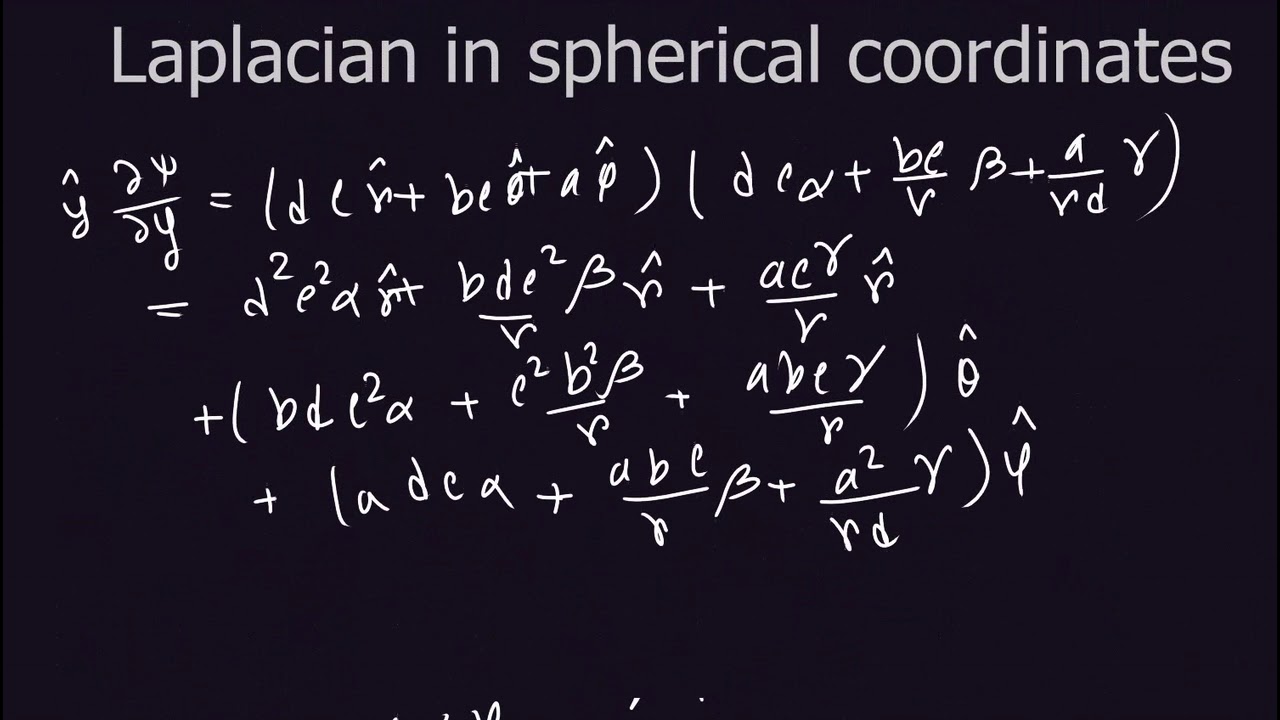 Laplacian in spherical coordinates
ŷ ∂ψ/∂y = (d c r̂ + bc θ̂ + a φ̂) (d c α + bc/r β + a/rd γ)
= d²c²α r̂ + bdc²/r β r̂ + acγ/r r̂
+ (bdc²α + c²b²β/r + abcγ/r) θ̂
+ (adcα + abc/r β + a²/rd γ) φ̂